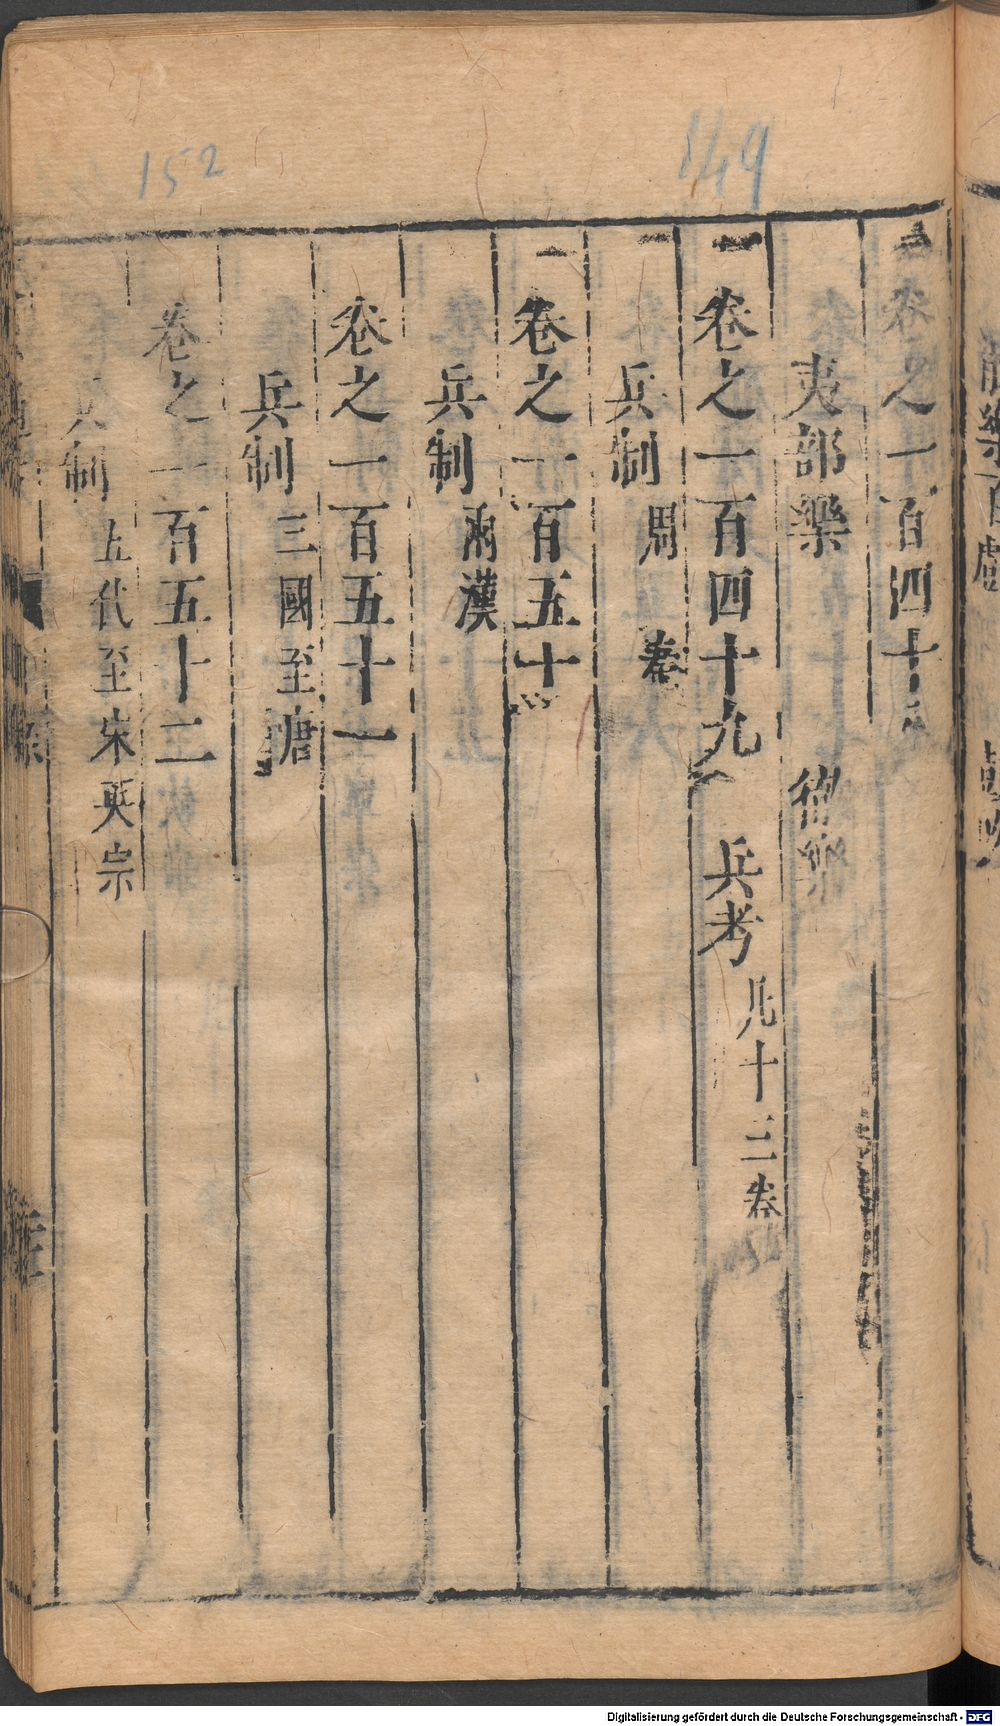 149
152
卷之一百四十八
夷部樂 徹樂
一 卷之一百四十九 兵考 凡十三卷
兵制 周 秦
一 卷之一百五十
兵制 兩漢
卷之一百五十一
兵制 三國至唐
卷之一百五十二
兵制 五代至宋英宗
Digitalisierung gefördert durch die Deutsche Forschungsgemeinschaft - DFG